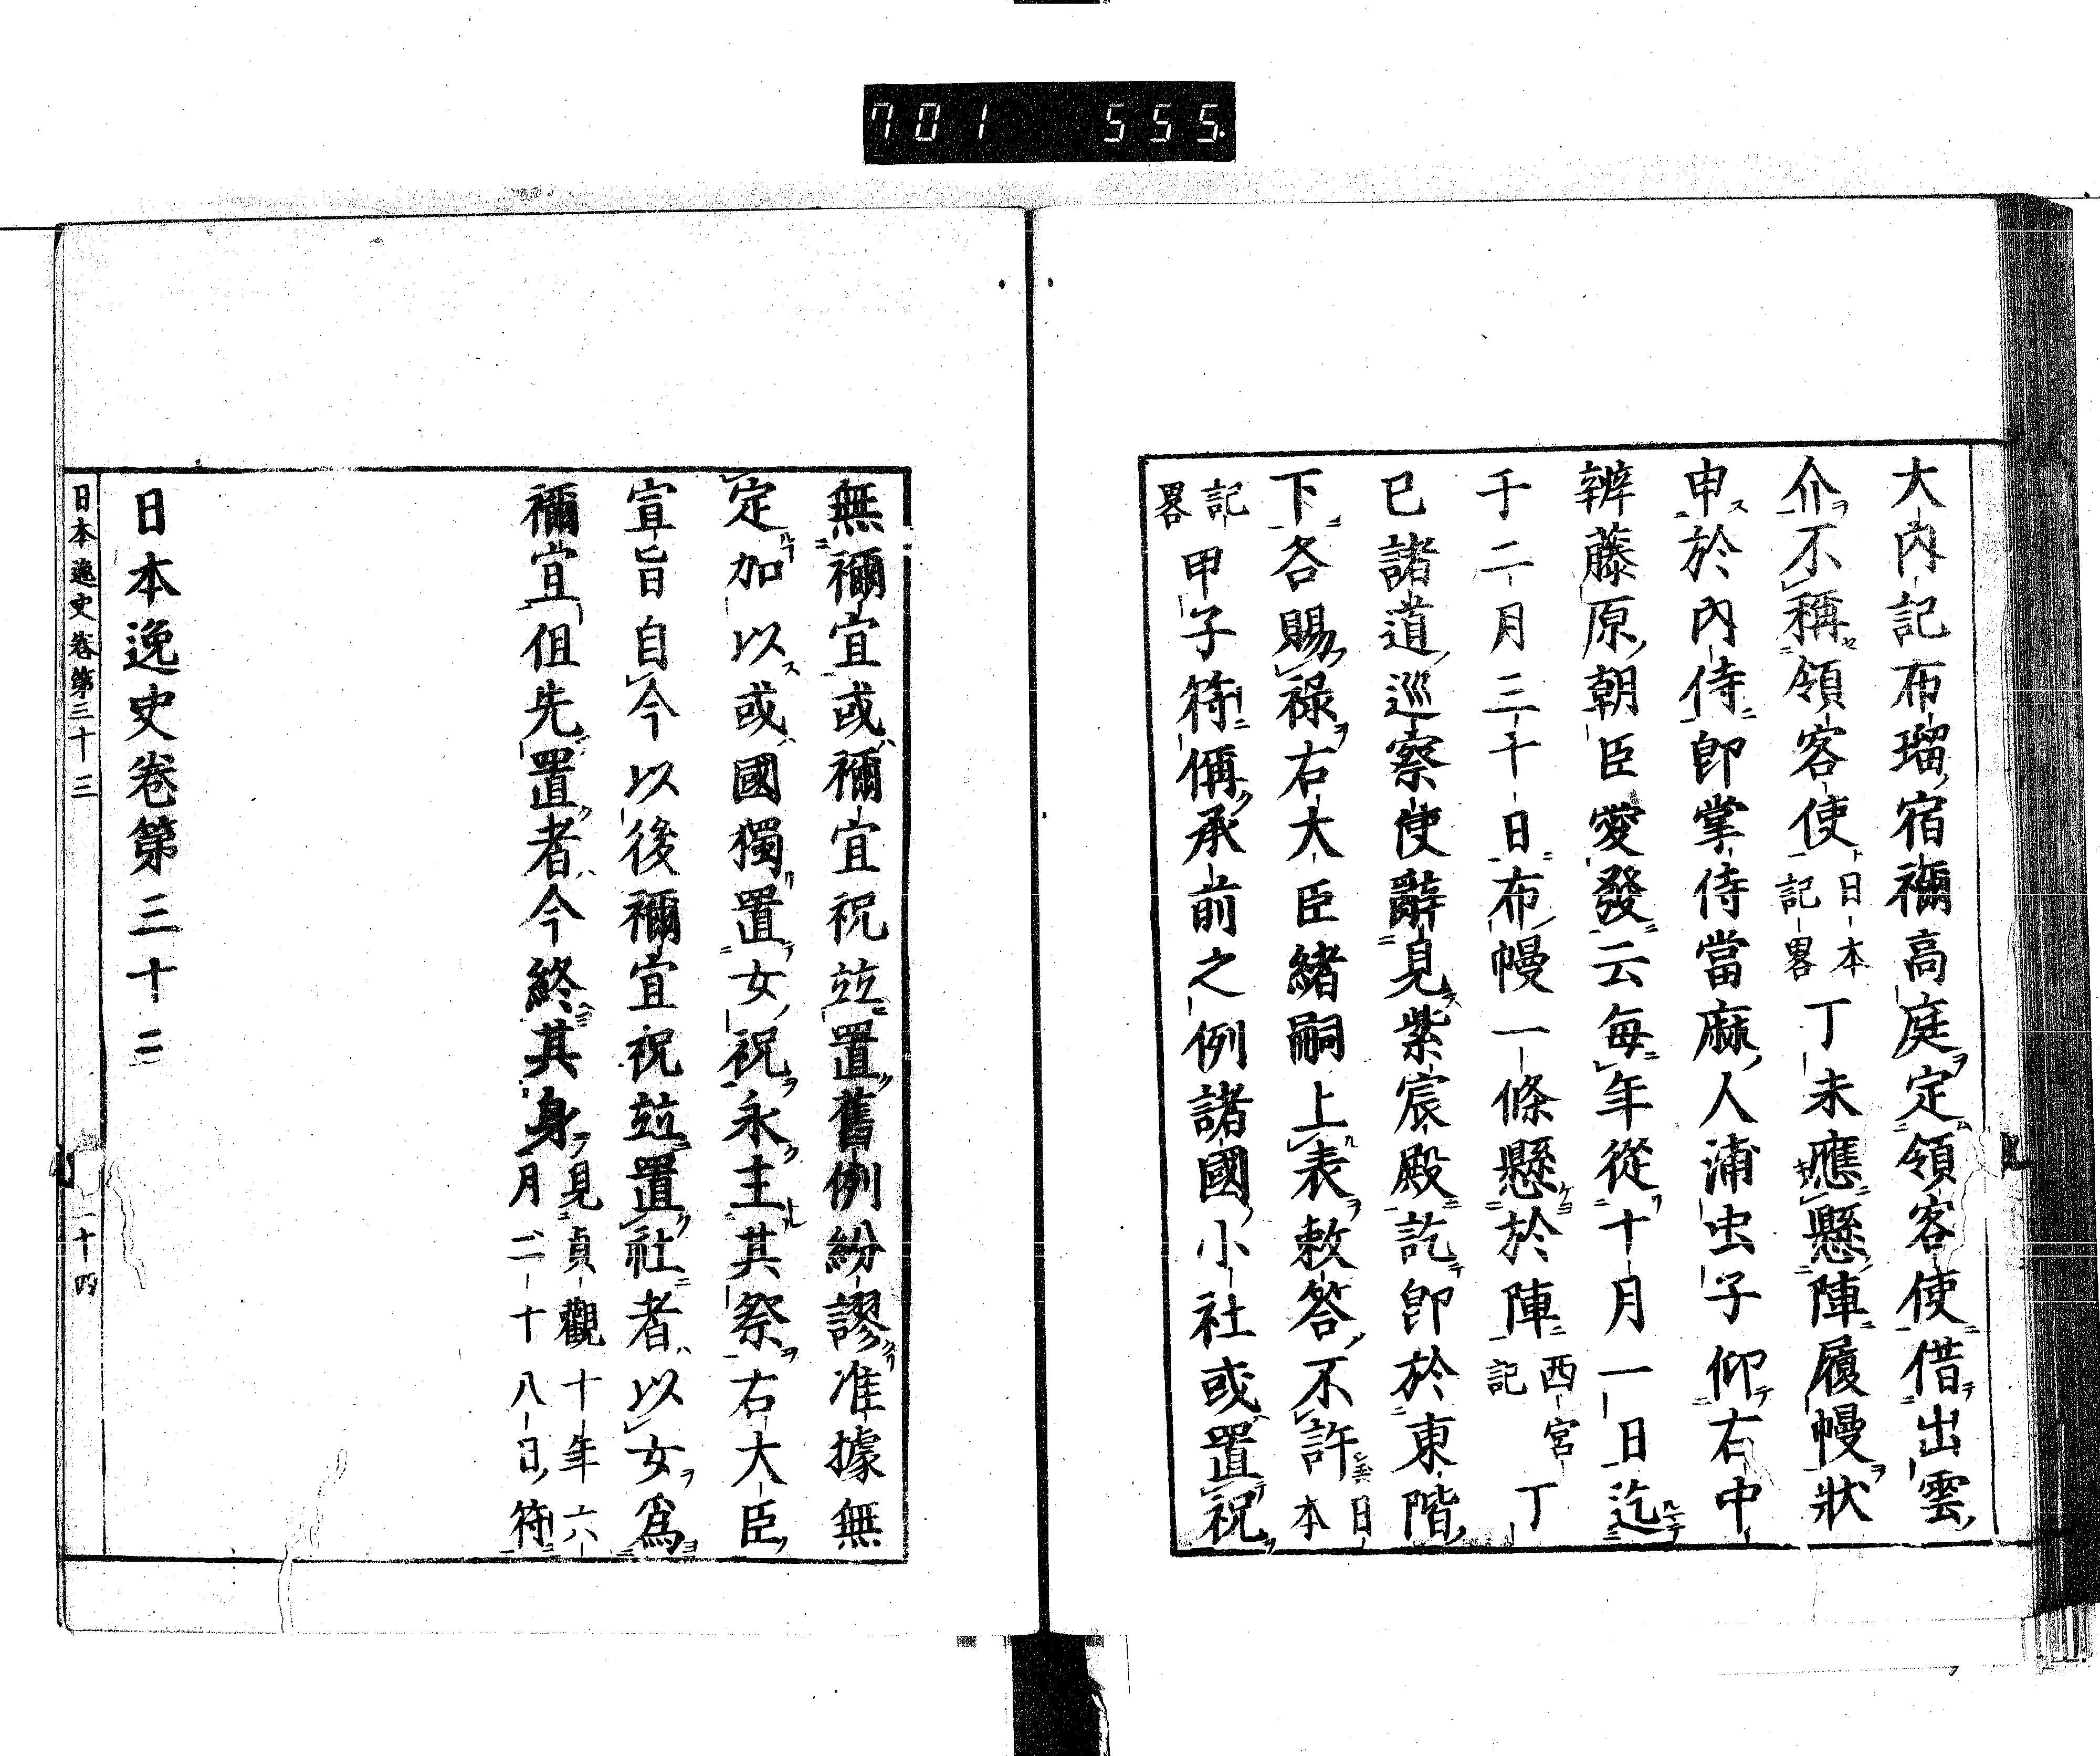 701 555
大内記布瑠宿禰高庭定領客使借出雲
介不稱領客使日本記畧丁未應懸陣履幔狀
申於內侍卽掌侍當麻人浦虫子仰右中
辨藤原朝臣愛發云每年從十月一日迄
于二月三十日布幔一條懸於陣西宮記丁
巳諸道巡察使辭見紫宸殿訖卽於東階
下各賜祿右大臣緒嗣上表敕答不許日本
記畧甲子符偁承前之例諸國小社或置祝
無禰宜或禰宜祝竝置舊例紛謬准據無
定加以或國獨置女祝永主其祭右大臣
宣旨自今以後禰宜祝竝置社者以女爲
禰宜但先置者今終其身見貞觀十年六月二十八日符
日本逸史卷第三十二
日本逸史卷第三十三 一十四